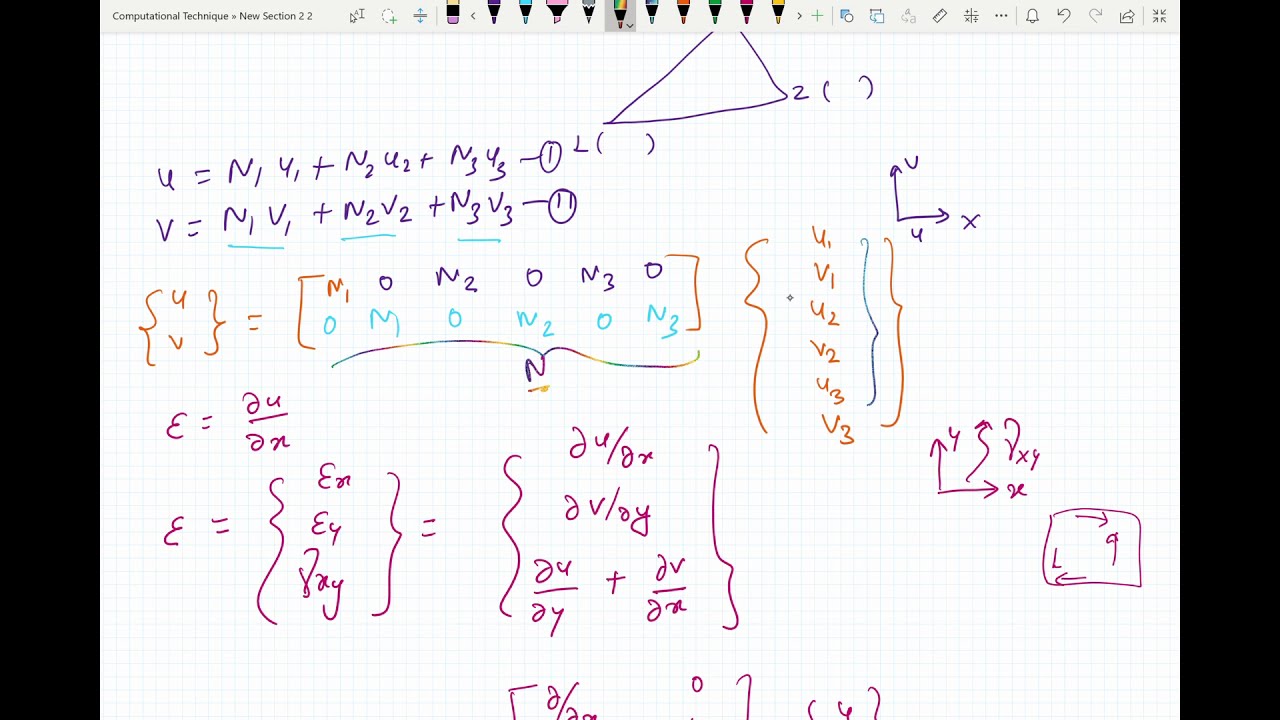 Computational Technique » New Section 2 2
2 ( )
1 ( )
u = N₁ u₁ + N₂ u₂ + N₃ u₃ — Ⓘ
v
V = N₁ V₁ + N₂ V₂ + N₃ V₃ — Ⓘ Ⓘ
u x
{ u v } = [ N₁ 0 N₂ 0 N₃ 0
0 N 0 N₂ 0 N₃ ]
{ u₁
V₁
u₂
V₂
u₃
V₃ }
N
ε = ∂u/∂x
y γxy
x
ε = { εx
εy
γxy } = { ∂u/∂x
∂V/∂y
∂u/∂y + ∂v/∂x }
[ ∂/∂x 0 ] { u }